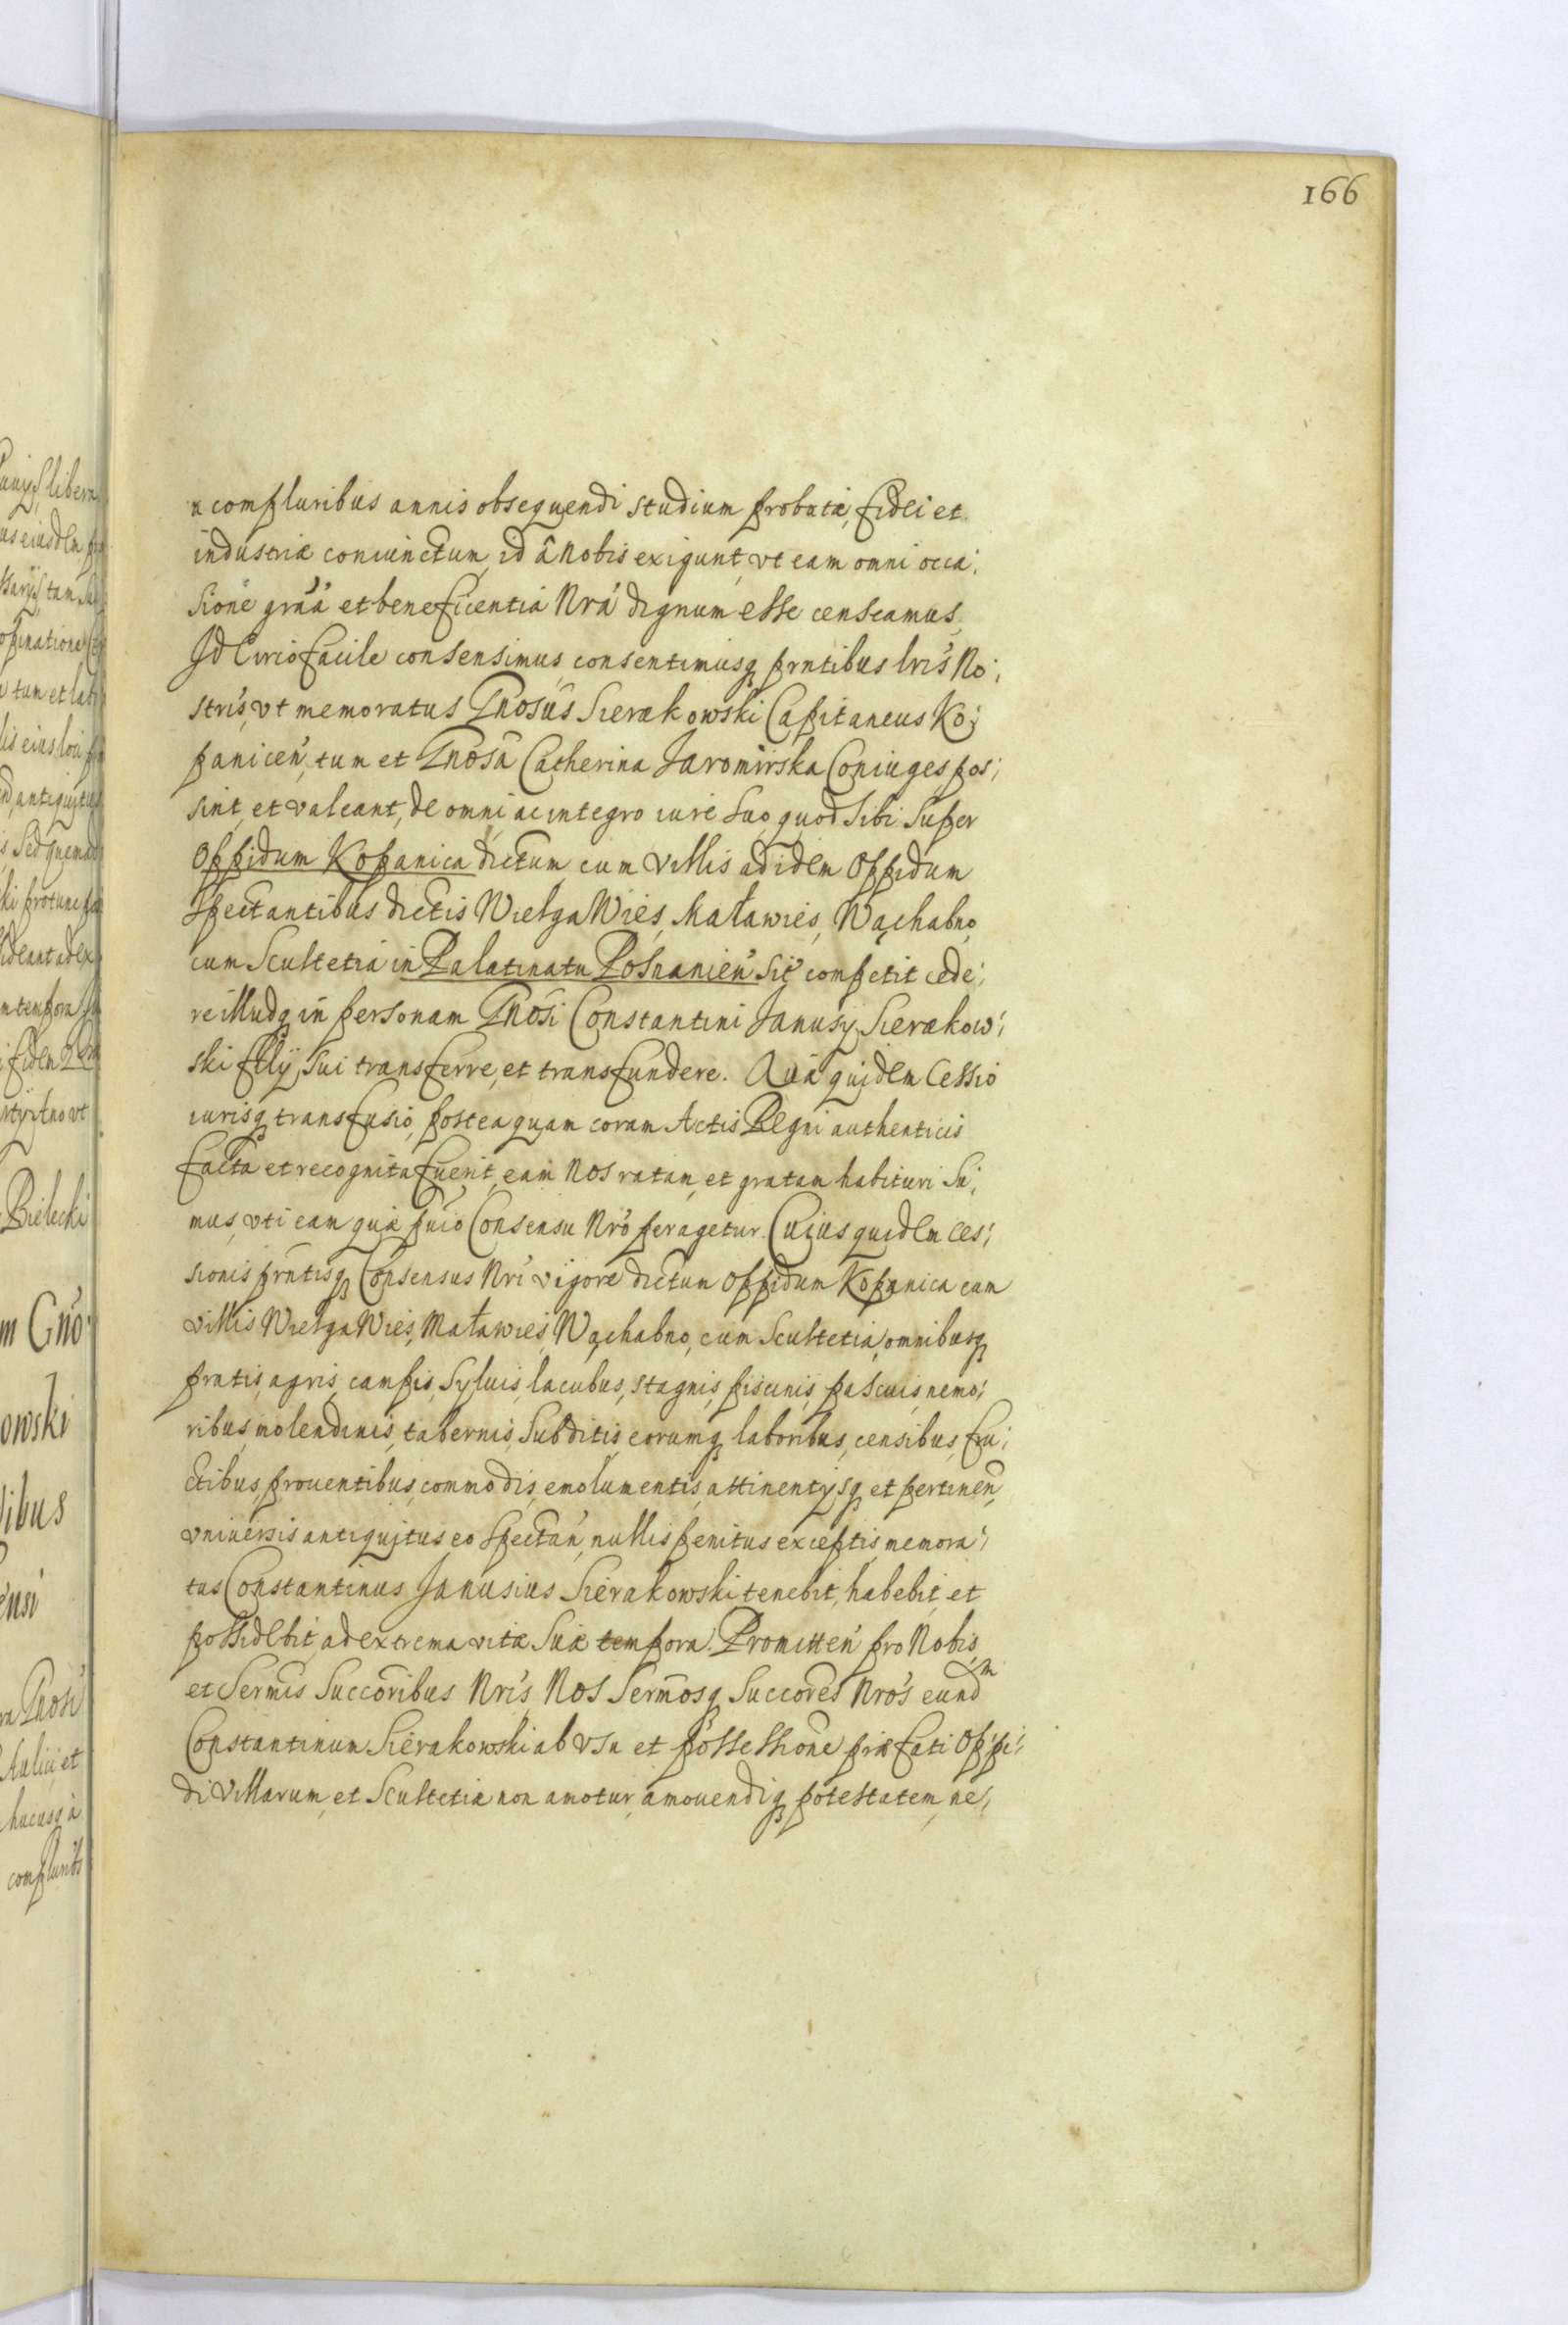 166
a compluribus annis obsequendi studium probatæ, fidei et
industriæ coniunctum, id â Nobis exigunt, vt eam omni occa:
sione graâ et beneficentia Nrá dignum esse censeamus.
Id Circo facile consensimus, consentimusq prntibus lris No:
stris, vt memoratus Gnosus Sierakowski Capitaneus Ko:
panicen, tum et Gnosa Catherina Jaromirska Coniuges pos:
sint, et valeant, de omni ac integro iure suo, quod sibi super
Oppidum Kopanica dictum, cum villis ad idem Oppidum
spectantibus dictis Wielga Wies, Mała wies, Wąchabno,
cum Scultetia in Palatinatu Posnanien sit competit cede:
re illudq in personam Gnosi Constantini Janusy Sierakow:
ski filij, sui transferre, et transfundere. Quæ quidem Cessio
iurisq transfusio, posteaquam coram Actis Regni authenticis
facta et recognita fuerit, eam Nos ratam, et gratam habituri su:
mus, vti eam quæ puio Consensu Nro peragetur. Cuius quidem ces:
sionis prntisq Consensus Nri vigore dictum Oppidum Kopanica cum
villis Wielga Wies, Mała wies, Wąchabno, cum Scultetia, omnibusq
pratis, agris, campis, syluis, lacubus, stagnis, piscinis, pascuis, nemo:
ribus, molendinis, tabernis, subditis, eorumq laboribus, censibus, fru:
ctibus, prouentibus, commodis, emolumentis, attinentysq et pertinen,
vniuersis antiquitus eo spectan, nullis penitus exceptis, memora:
tus Constantinus Janusius Sierakowski tenebit, habebit, et
possidebit, ad extrema vitæ suæ tempora. Promitten pro Nobis,
et Sermis Succoribus Nris Nos Sermosq Succores Nros eundm
Constantinum Sierakowski ab vsu et possessione præfati Oppi:
di villarum, et Scultetiæ non amotur, amouendiq potestatem, ne: